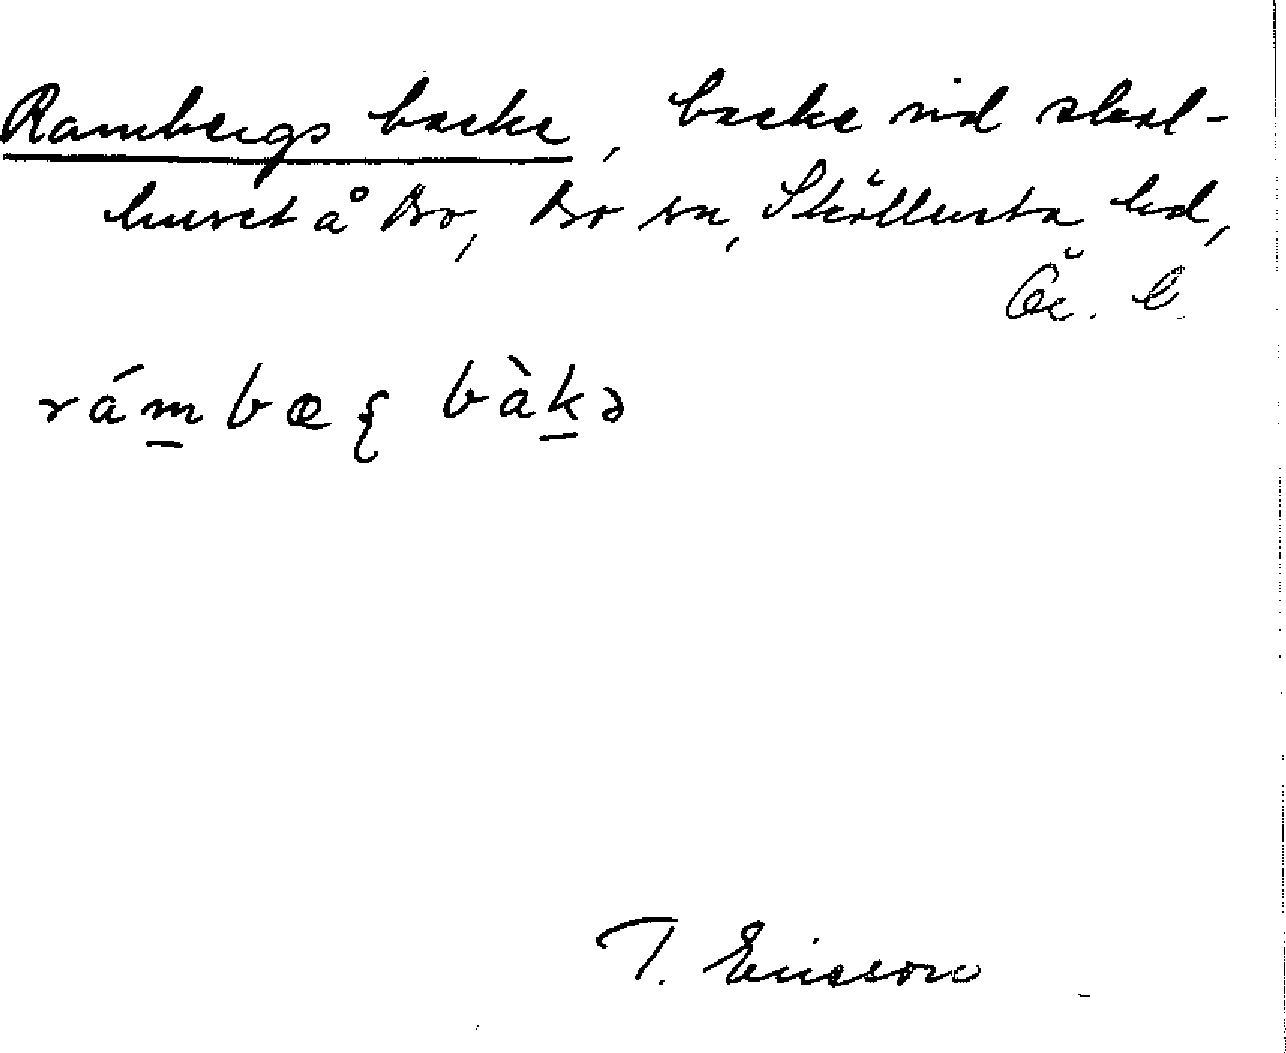 Rambergs backe, backe vid skol-
huset å Bro, Bo sn, Sköllersta hd,
Ör. l.
rám̲bœʂ bàk̲ə
T. Ericson